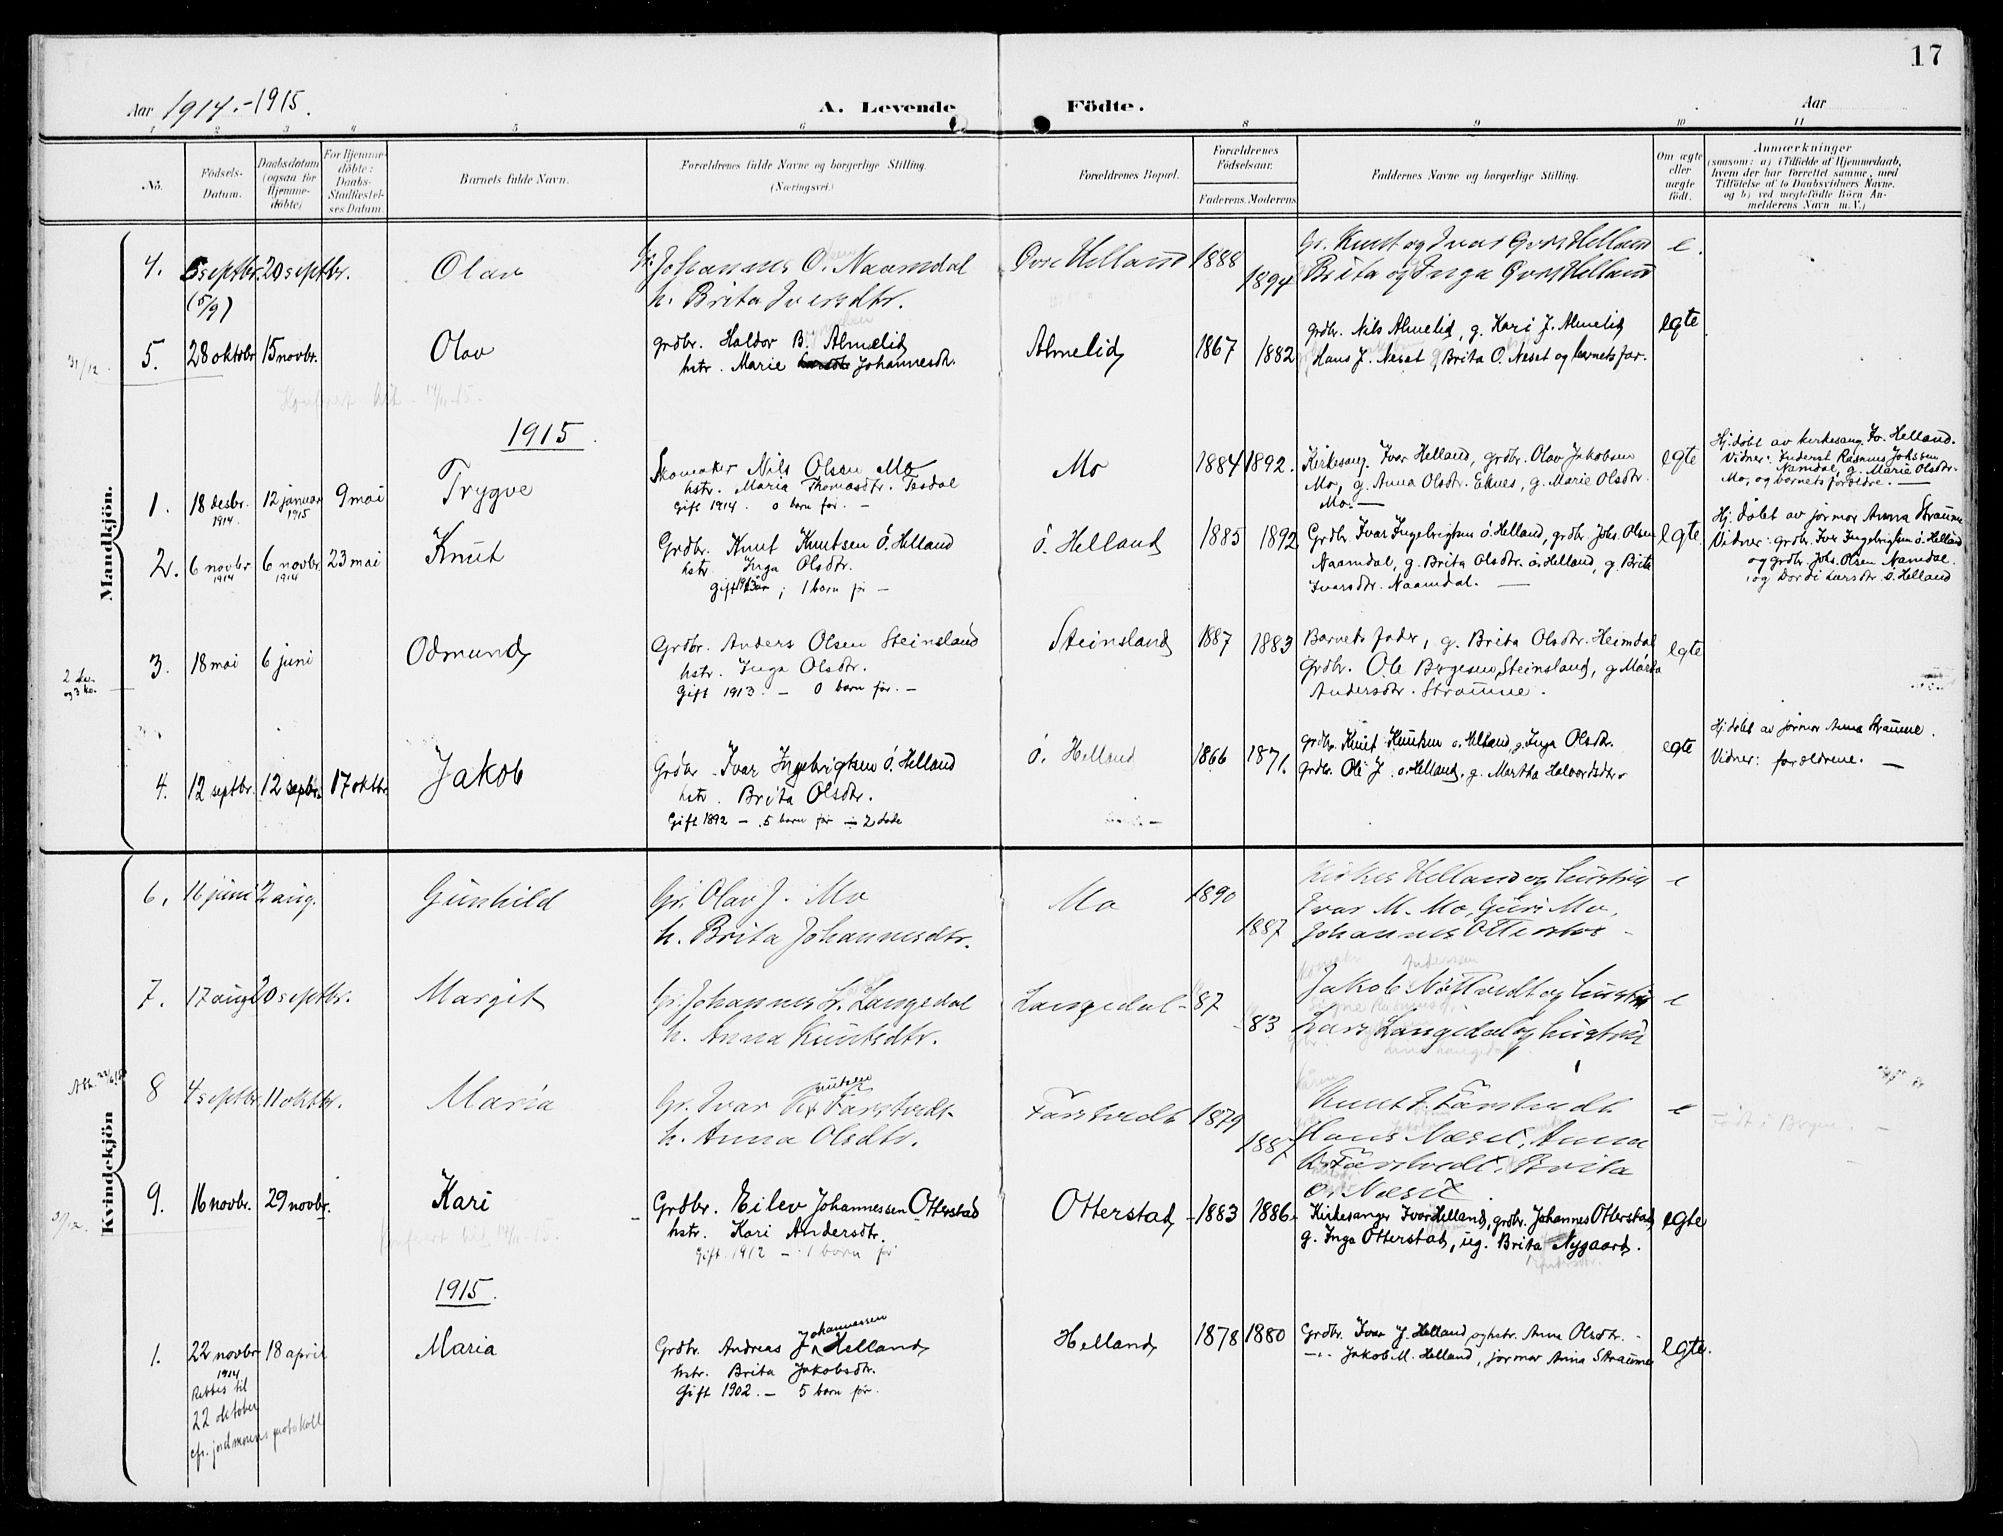 17
Aar 1914.-1915.
A. Levende Födte.
Aar
1 2 3 4 5 6 8 9 10 11
No.
Födsels-Datum.
Daabsdatum (ogsaa for Hjemme-döbte)
For Hjemme-döbte: Daabs-Stadfæstel-ses Datum
Barnets fulde Navn.
Forældrenes fulde Navne og borgerlige Stilling. (Næringsvei.)
Forældrenes Bopæl.
Forældrenes Födselsaar.
Faderens. Moderens.
Faddernes Navne og borgerlige Stilling.
Om ægte eller uægte födt.
Anmærkninger
(saasom: a) i Tilfælde af Hjemmedaab, hvem der har forrettet samme, med Tilföielse af to Daabsvidners Navne, og b) ved uegtefödte Börn An-melderens Navn m. V.)
Mandkjön.
4. 5 septbr. 20 septbr. Olav
(5/9)
Johannes O. Naamdal
h. Brita Iversdtr.
Øvre Helland 1888 1894
Gr. Knut og Ivar Øvre Helland
Brita og Inga Øvre Helland
e.
31/12
5. 28 oktbr. 15 novbr. Olav
grdbr. Haldor B. Almelid
hstr. Marie Johannesdtr.
Almelid 1867 1882
grdbr. Nils Almelid, g. Kari J. Almelid
Hans J. Neset g Brita O. Neset og barnets far.
egte
1915
1. 18 desbr. 1914. 12 januar 1915 9 mai Trygve
Skomaker Nils Olsen Mo
hstr. Maria Thomasdtr. Tesdal
Gift 1914. 0 barn før. -
Mo 1884 1892.
Kirkesang. Ivar Helland, grdbr. Olav Jakobsen
Mo, g. Anna Olsdtr. Eknes, g. Marie Olsdtr.
Mo. —
egte
Hj. døbt av kirkesang. Iv. Helland.
Vidner: Inderst Rasmus Johssen
Namdal, g. Marie Olsdtr.
Mo, og barnets forældre. —
2. 6 novbr. 1914 6 novbr. 1914 23 mai Knut
Grdbr. Knut Knutsen ö. Helland
hstr. Inga Olsdtr.
gift 1913 ; 1 barn før —
ö. Helland 1885 1892
Grdbr. Ivar Ingebrigtsen ö. Helland, grdbr Johs. Olsen
Naamdal, g. Brita Olsdtr. ö. Helland, g. Brita
Ivarsdtr. Naamdal. —
egte.
Hj. døbt av jormor Anna Straume
Vidner: grdbr. Ivar Ingebrigtsen ö. Helland
og grdbr. Johs. Olsen Namdal.
og Dordi Larsdtr. ö. Helland
3. 18 mai 6 juni Odmund
Grdbr. Anders Olsen Steinsland
hstr. Inga Olsdtr.
Gift 1913. — 0 barn før. —
Steinsland 1887 1883
Barnets fader, g. Brita Olsdtr. Heimdal
Grdbr. Ole Børgesen Steinsland, g Marta
Andersdtr. Straume.
egte
4. 12 septbr. 12 septbr. 17 oktbr. Jakob
Grdbr. Ivar Ingebrigtsen ö. Helland
hstr. Brita Olsdtr.
Gift 1892 — 5 barn før — 2 døde
ö. Helland 1866 1871.
Grdbr. Knut Knutsen ö. Helland, g. Inga Olsdtr.
Grdbr. Ole J. ö. Helland, g. Martha Halvordsdtr.
egte
Hj. døbt av jormor Anna Straume.
Vidner: foreldrene. —
Kvindekjön
6. 16 juni 2 aug. Gunhild
Gr. Olav J. Mo
h. Brita Johannesdtr.
Mo 1890 1887
Kirkes Helland og hustru
Ivar M. Mo, Guri Mo,
Johannes Otterstad
e
7. 17 aug 20 septbr. Margit
Gr. Johannes L. Langedal
h. Anna Knutsdtr.
Langedal 87 83
Jakob Nøttvedt og hustru
Lars Langedal og hustru
e
8 4 septbr. 11 oktbr. Maria
Gr. Ivar Knutsen Farstvedt
h. Anna Olsdtr.
Farstvedt 1879 1887
Knut I. Farstvedt
Hans Næset, Anna
K. Farstvedt, Brita
O. Næset
e
31/12.
9. 16 novbr. 29 novbr. Kari
Grdbr. Eilev Johannessen Otterstad
hstr. Kari Andersdtr.
Gift 1912 — 1 barn før
Otterstad 1883 1886
Kirkesanger Ivar Helland, grdbr. Johannes Otterstad,
g. Inga Otterstad, ug. Brita Nygaard.
egte
1915.
1. 22 novbr. 1914 18 april Maria
Rettes til
22 oktober
cfr. jordmorens protokoll
Grdbr. Andreas Johannessen Helland
hstr. Brita Jakobsdtr.
Gift 1902. — 5 barn før.
Helland 1878 1880
Grdbr. Ivar J. Helland og hstr. Anna Olsdtr. -
—"— Jakob M. Helland, jormor Anna Straume
egte.